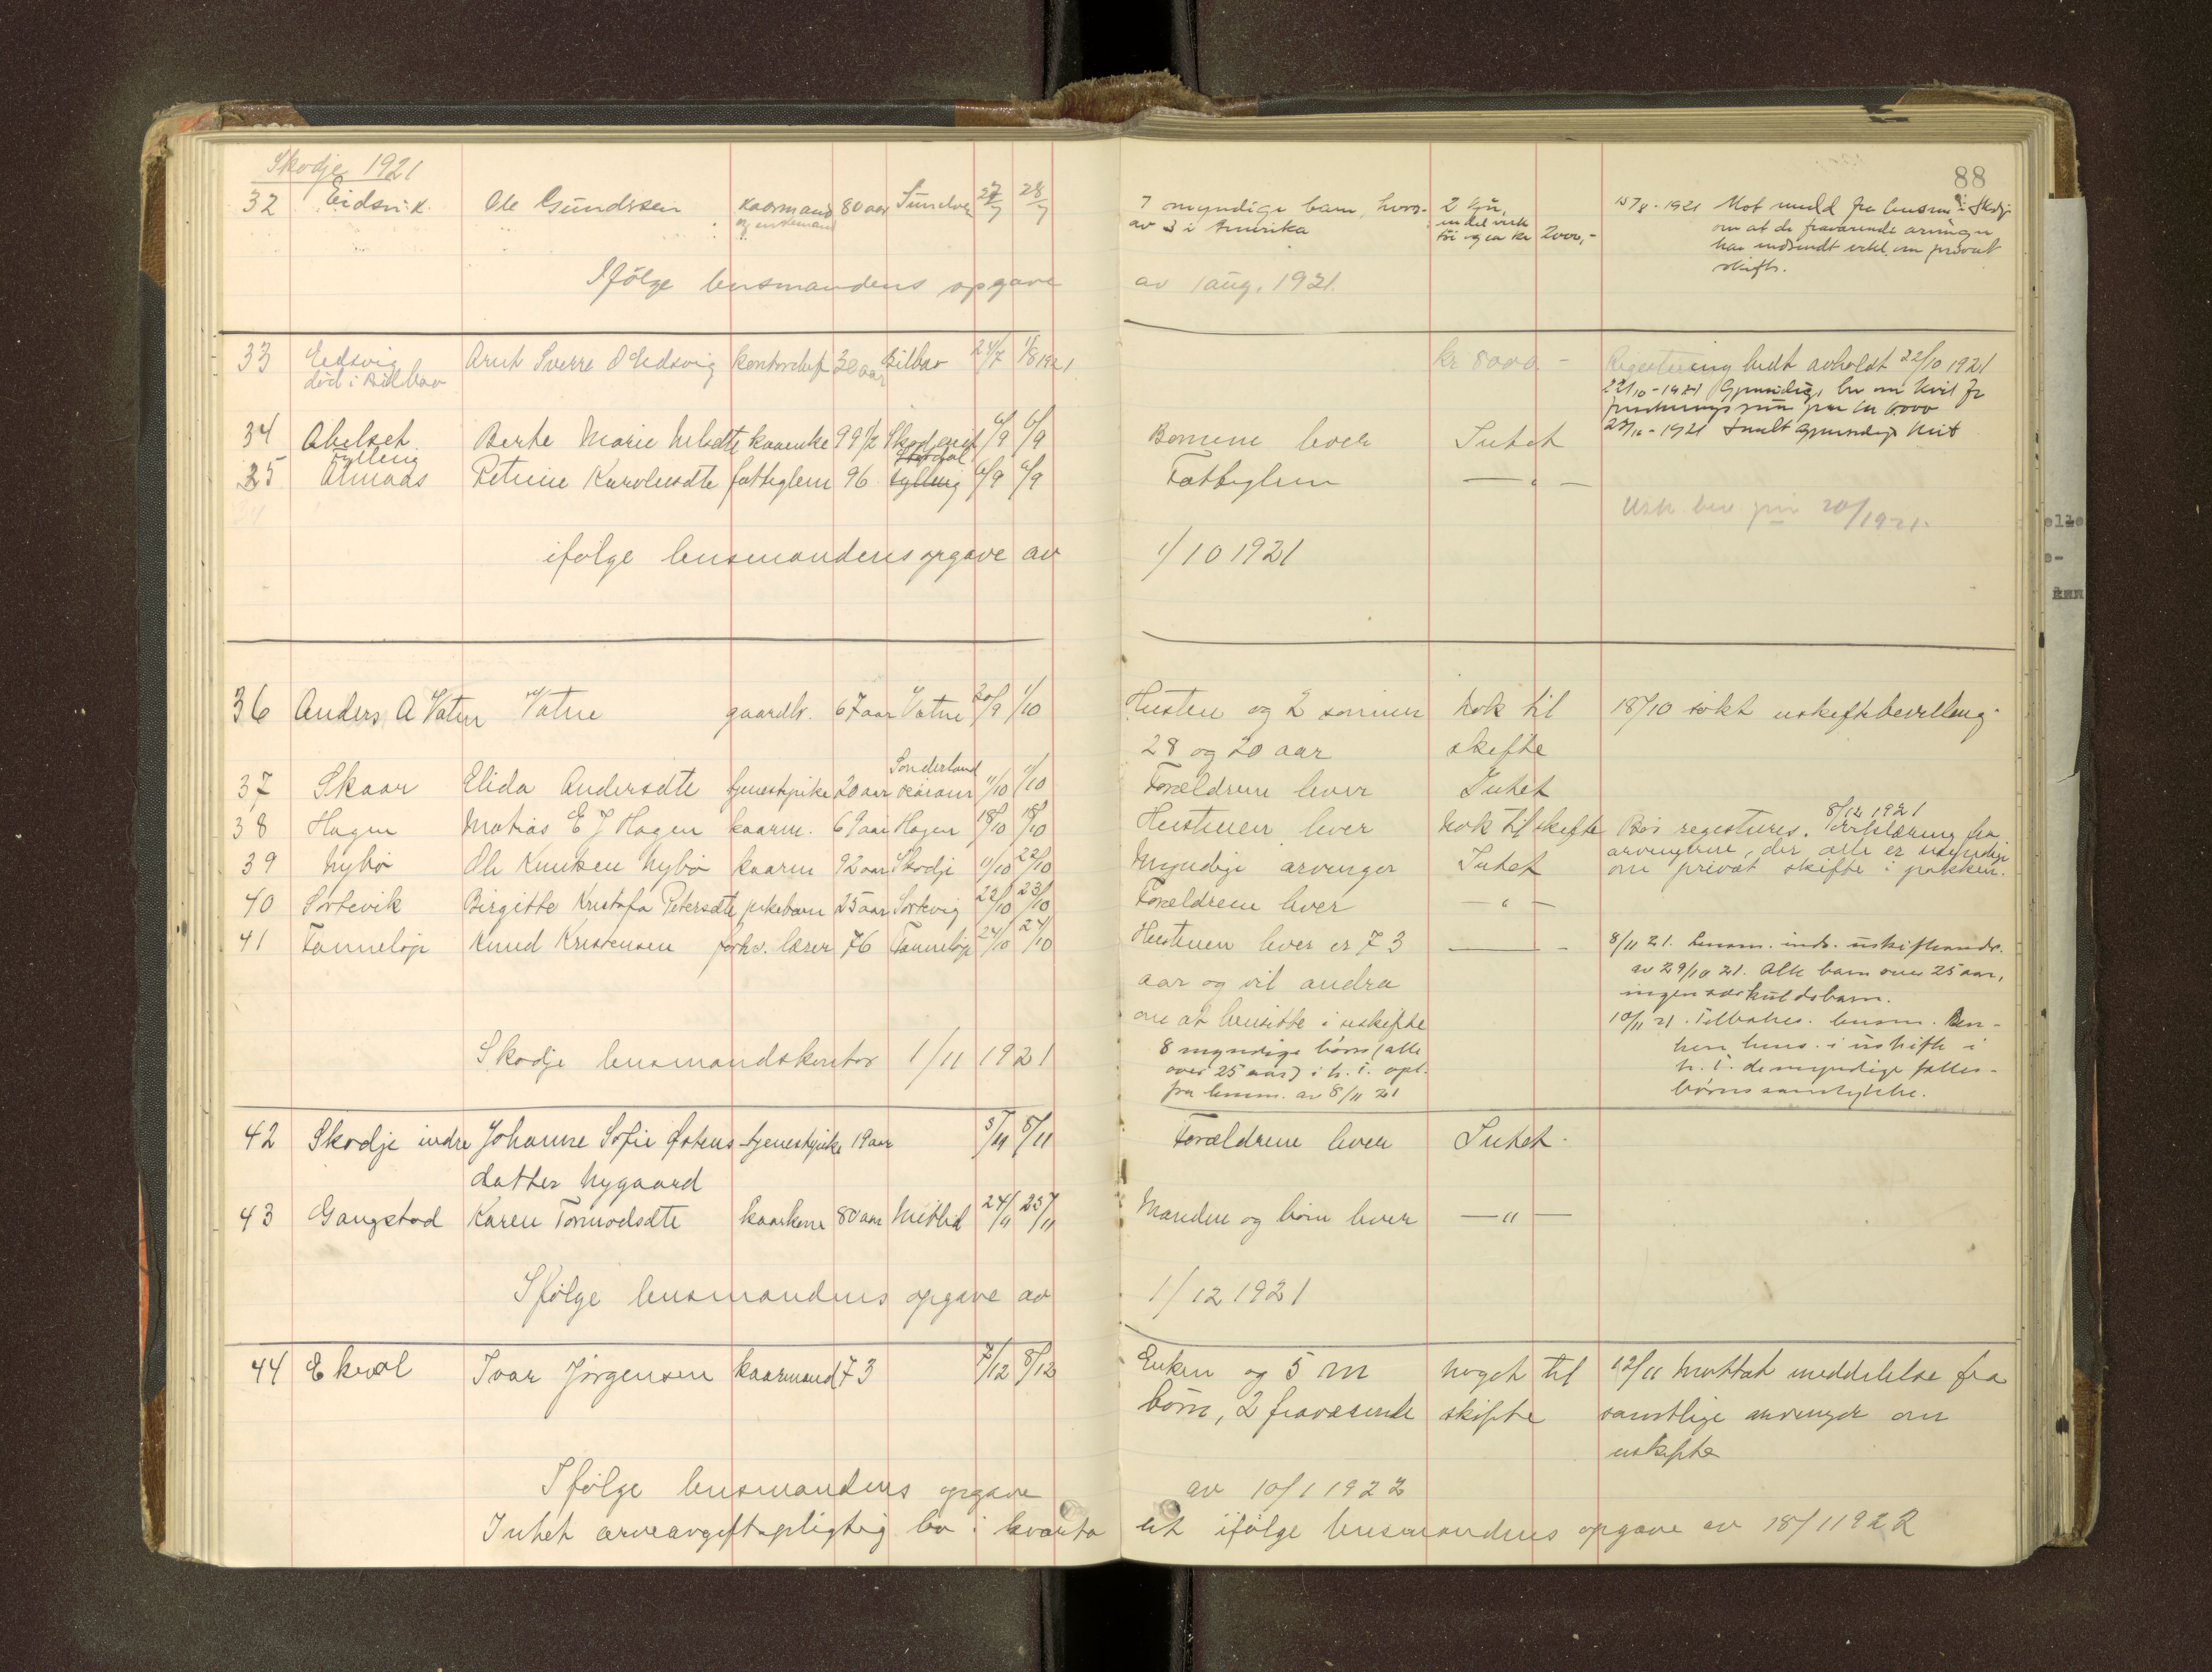 88
Skodje 1921
32 Eidsvik Ole Gundersen kaarmand 80 aar 27/7 28/7 7 myndige barn, hvor- 2 kør, 15/8 - 1921 Mot. meld. fra lensm. i Skodje
og enkemand av 3 i Amerika en del verk om at de fraværende arvinger
tøi og ca kr 2000,- har indsendt erkl. om privat
skifte.
Ifølge lensmandens opgave av 1 aug. 1921.
33 Eidsvig Arnt Sverre O Eidsvig kontorchef 30 aar Bilbao 24/7 1/8 1921 kr 8000.- Registrering bedt avholdt 22/10 1921
død i Bilbao 22/10-1921
34 Abelset Berte Marie kaarenke 99 1/2 6/9 6/9 Børnene lever Intet
Fylling
35 Almaas Petrine Karolusdte fattiglem 96 Fylling 6/9 6/9 Fattiglem — " —
20/1921.
ifølge lensmandens opgave av 1/10 1921
36 Anders A Vatne Vatne gaardbr. 67 aar Vatne 20/9 1/10 Husten og 2 sønner nok til 18/10 søkt uskiftebevilling.
28 og 20 aar skifte
Sonderland
37 Skaar Elida Andersdte tjenestepike 20 aar 11/10 11/10 Forældrene lever Intet
8/12 1921
38 Hagen Matias E J Hagen kaarm. 69 aar Hagen 18/10 18/10 Hustruen lever nok til skifte Bør registreres. Erklæring fra
arvingerne, der alle er myndige
39 Nybø Ole Knutsen Nybø kaarm 92 aar Skodje 11/10 22/10 Myndige arvinger Intet om privat skifte i pakken.
40 Sortevik Birgitte Kristofa Petersdte pikebarn 25 aar Sortvig 22/10 23/10 Forældrene lever — " —
41 Tanneløp Knud Kristensen forhv. lærer 76 Tanneløp 24/10 24/10 Hustruen lever er 73 — — 8/11 21. Lensm. inds. uskifteandr.
aar og vil andra av 29/10 21. Alle barn over 25 aar,
ingen særkuldsbarn.
om at hensitte i uskifte 10/11 21. Tilbakes. lensm. Den-
Skodje lensmandskontor 1/11 1921 8 myndige børn (alle hen hens. i uskifte i
over 25 aar) i h. t. opl. h. t. de myndige fælles-
fra lensm. av 8/11 21 børns samtykke.
42 Skodje indre Johanne Sofie Østens- tjenestepike 19 aar 5/11 5/11 Forældrene lever Intet.
datter Nygaard
43 Gangstad Karen Tormodsdte kaarkone 80 aar Mitlid 24/11 25/11 Manden og børn lever — " —
Ifølge lensmandens opgave av 1/12 1921
44 Ekrol Ivar Jørgensen kaarmand 73 7/12 8/12 Enken og 5 m noget til 12/11 Mottat meddelelse fra
børn, 2 fraværende skifte samtlige arvinger om
uskifte
Ifølge lensmandens opgave av 10/1 1922
Intet arveavgiftspligtig bo i kvarta let ifølge lensmandens opgave av 18/1 1922
elle
e-